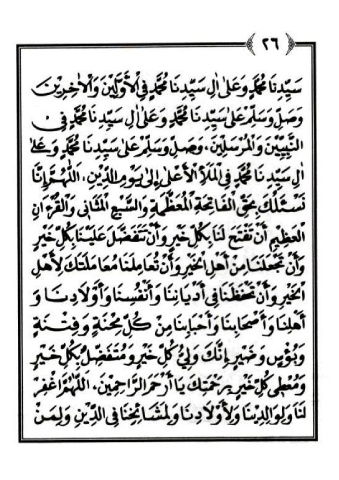 ٢٦
سَيِّدِنَا مُحَمَّدٍ وَعَلىٰ اٰلِ سَيِّدِنَا مُحَمَّدٍ فِي الْأَوَّلِيْنَ وَالْاٰخِرِيْنَ
وَصَلِّ وَسَلِّمْ عَلىٰ سَيِّدِنَا مُحَمَّدٍ وَعَلىٰ اٰلِ سَيِّدِنَا مُحَمَّدٍ فِي
النَّبِيِّيْنَ وَالْمُرْسَلِيْنَ، وَصَلِّ وَسَلِّمْ عَلىٰ سَيِّدِنَا مُحَمَّدٍ وَعَلىٰ
اٰلِ سَيِّدِنَا مُحَمَّدٍ فِي الْمَلَأِ الْأَعْلىٰ إِلىٰ يَوْمِ الدِّيْنِ، اَللّٰهُمَّ إِنَّا
نَسْئَلُكَ بِحَقِّ الْفَاتِحَةِ الْمُعَظَّمَةِ وَالسَّبْعِ الْمَثَانِي وَالْقُرْاٰنِ
الْعَظِيْمِ أَنْ تَفْتَحَ لَنَا بِكُلِّ خَيْرٍ وَأَنْ تَتَفَضَّلَ عَلَيْنَا بِكُلِّ خَيْرٍ
وَأَنْ تَجْعَلَنَا مِنْ أَهْلِ الْخَيْرِ وَأَنْ تُعَامِلَنَا مُعَامَلَتَكَ لِأَهْلِ
الْخَيْرِ وَأَنْ تَحْفَظَنَا فِي أَدْيَانِنَا وَأَنْفُسِنَا وَأَوْلَادِنَا وَ
أَهْلِنَا وَأَصْحَابِنَا وَأَحْبَابِنَا مِنْ كُلِّ مِحْنَةٍ وَفِتْنَةٍ
وَبُؤْسٍ وَضَيْرٍ إِنَّكَ وَلِيُّ كُلِّ خَيْرٍ وَمُتَفَضِّلٌ بِكُلِّ خَيْرٍ
وَمُعْطِي كُلِّ خَيْرٍ بِرَحْمَتِكَ يَا أَرْحَمَ الرَّاحِمِيْنَ، اَللّٰهُمَّ اغْفِرْ
لَنَا وَلِوَالِدِيْنَا وَلِأَوْلَادِنَا وَلِمَشَائِخِنَا فِي الدِّيْنِ وَلِمَنْ